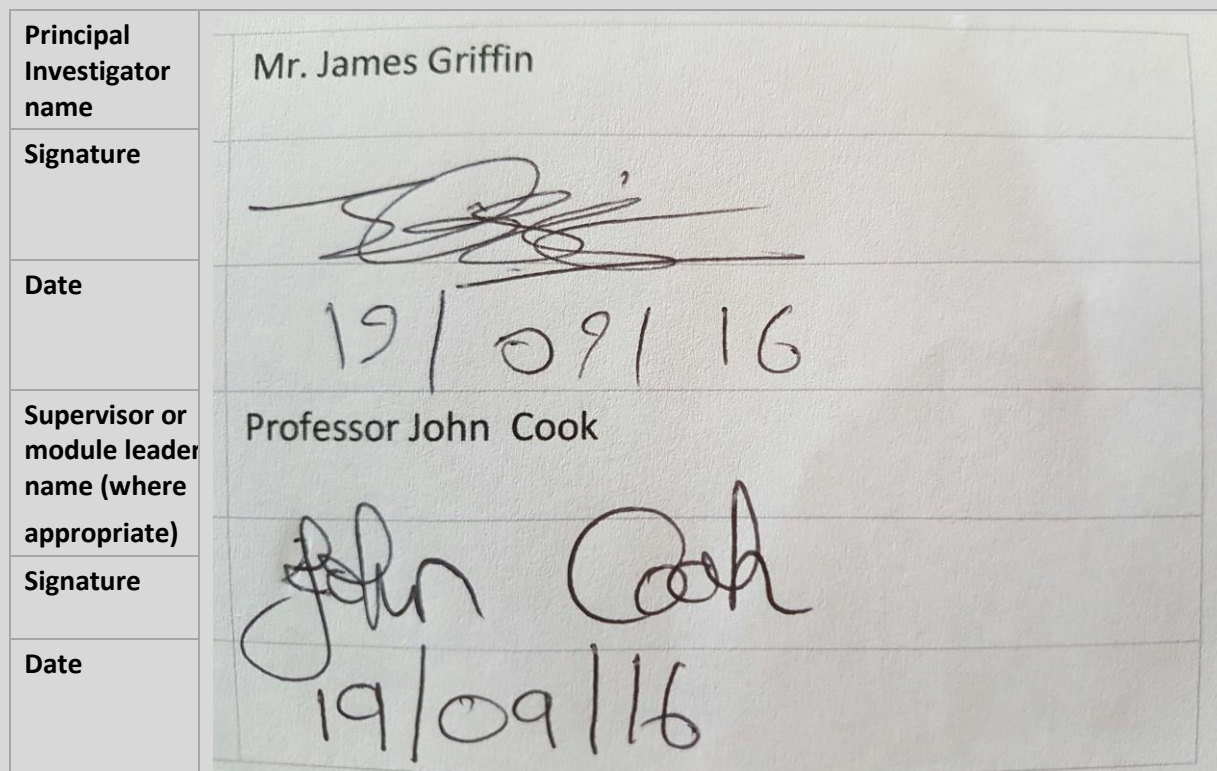 Principal
Investigator
name
Mr. James Griffin
Signature
Date
19/09/16
Supervisor or
module leader
name (where
appropriate)
Professor John Cook
Signature
John Cook
Date
19/09/16